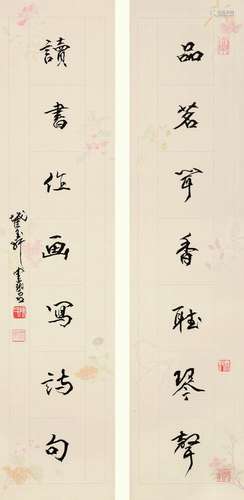 品茗聞香聽琴聲
讀書作画寫詩句